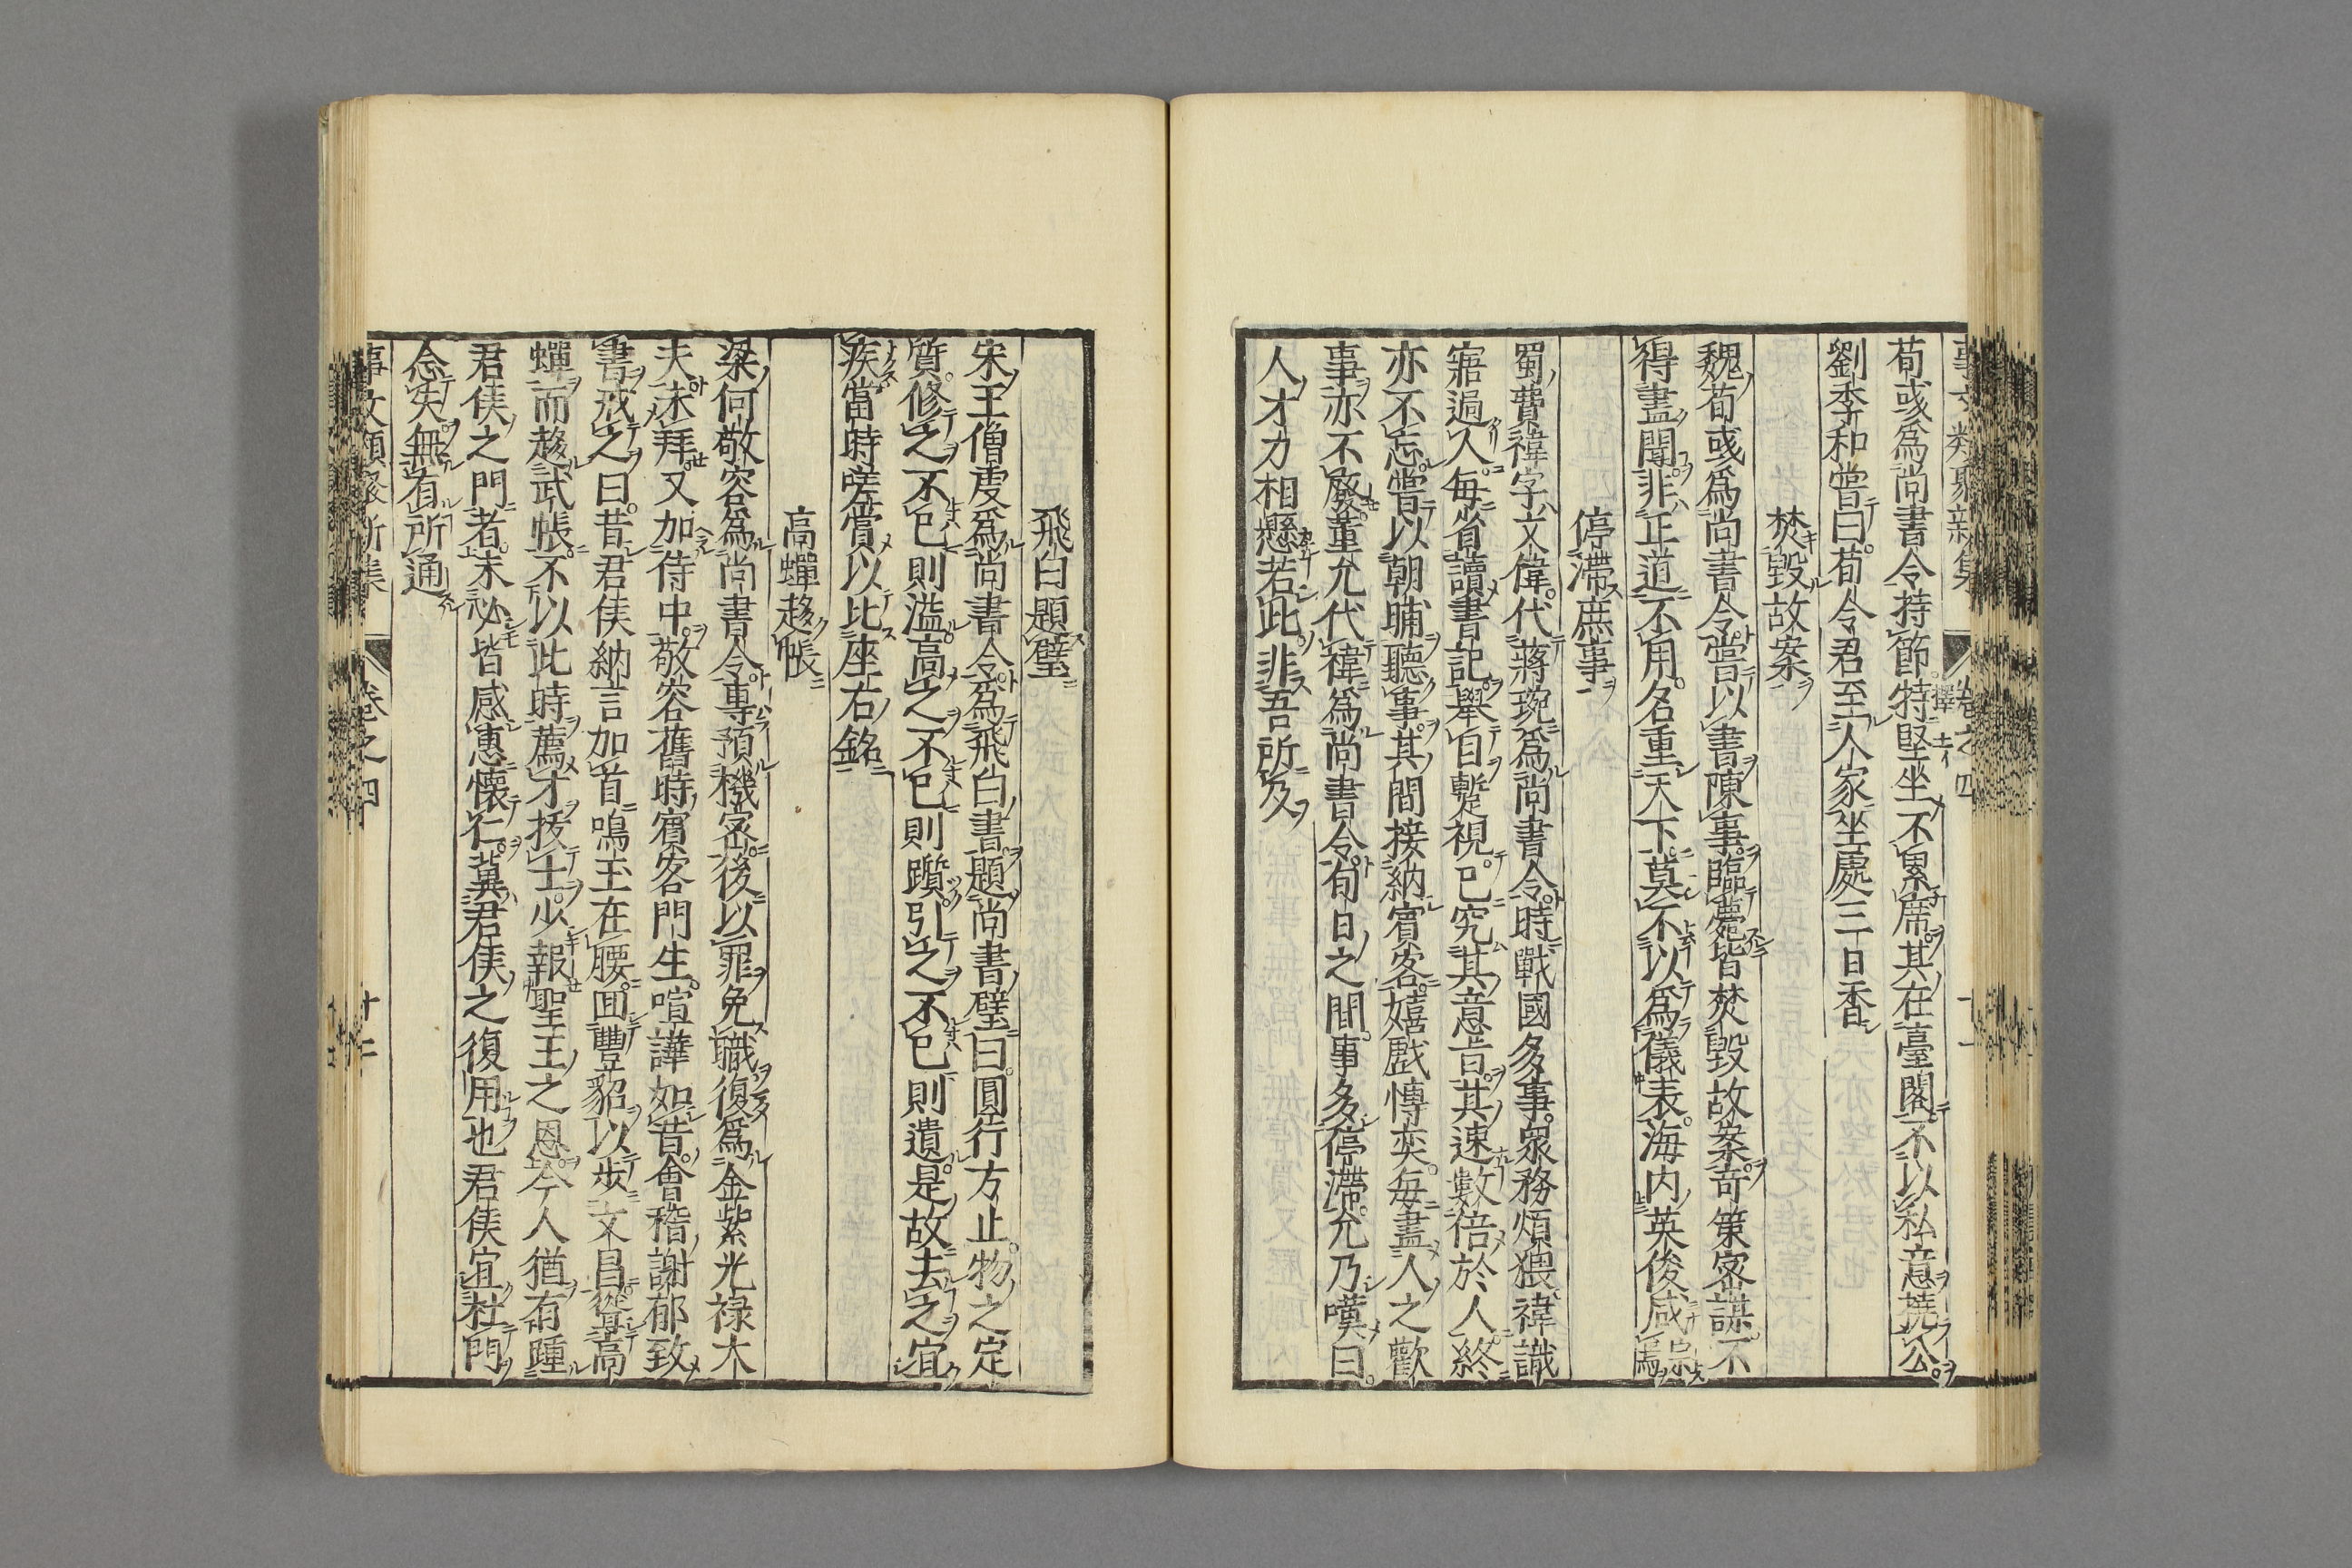 事文類聚新集 卷之四 十一
荀彧爲尚書令持節特堅坐不累席其在臺閣不以私意撓公
劉季和嘗曰荀令君至人家坐處三日香
焚毀故案
魏荀彧爲尚書令嘗以書陳事臨薨皆焚毀故案奇策密謀不
得盡聞非正道不用名重天下莫不以爲儀表海内英俊咸宗焉
停滯庶事
蜀費禕字文偉代蔣琬爲尚書令時戰國多事衆務煩猥禕識
寤過人每省讀書記舉目蹔視已究其意旨其速數倍於人終
亦不忘嘗以朝晡聽事其間接納賓客嬉戲愽奕每盡人之歡
事亦不廢董允代禕爲尚書令旬日之間事多停滯允乃嘆曰
人才力相懸若此非吾所及
飛白題壁
宋王僧虔爲尚書令爲飛白書題尚書壁曰圓行方止物之定
質修之不已則溢高之不已則躓引之不已則遺是故去之宜
疾當時嗟賞以比座右銘
高蟬趍帳
梁何敬容爲尚書令專預機密後以罪免職復爲金紫光禄大
夫未拜又加侍中敬容舊時賓客門生喧譁如昔會稽謝郁致
書戒之曰昔君侯納言加首鳴玉在腰囬豐貂以歩文昌聳高
蟬而趍武帳不以此時薦才抜士少報聖王之恩今人猶有踵
君侯之門者未必皆感惠懷仁冀君侯之復用也君侯宜杜門
念失無有所通
事文類聚新集 卷之四 十二